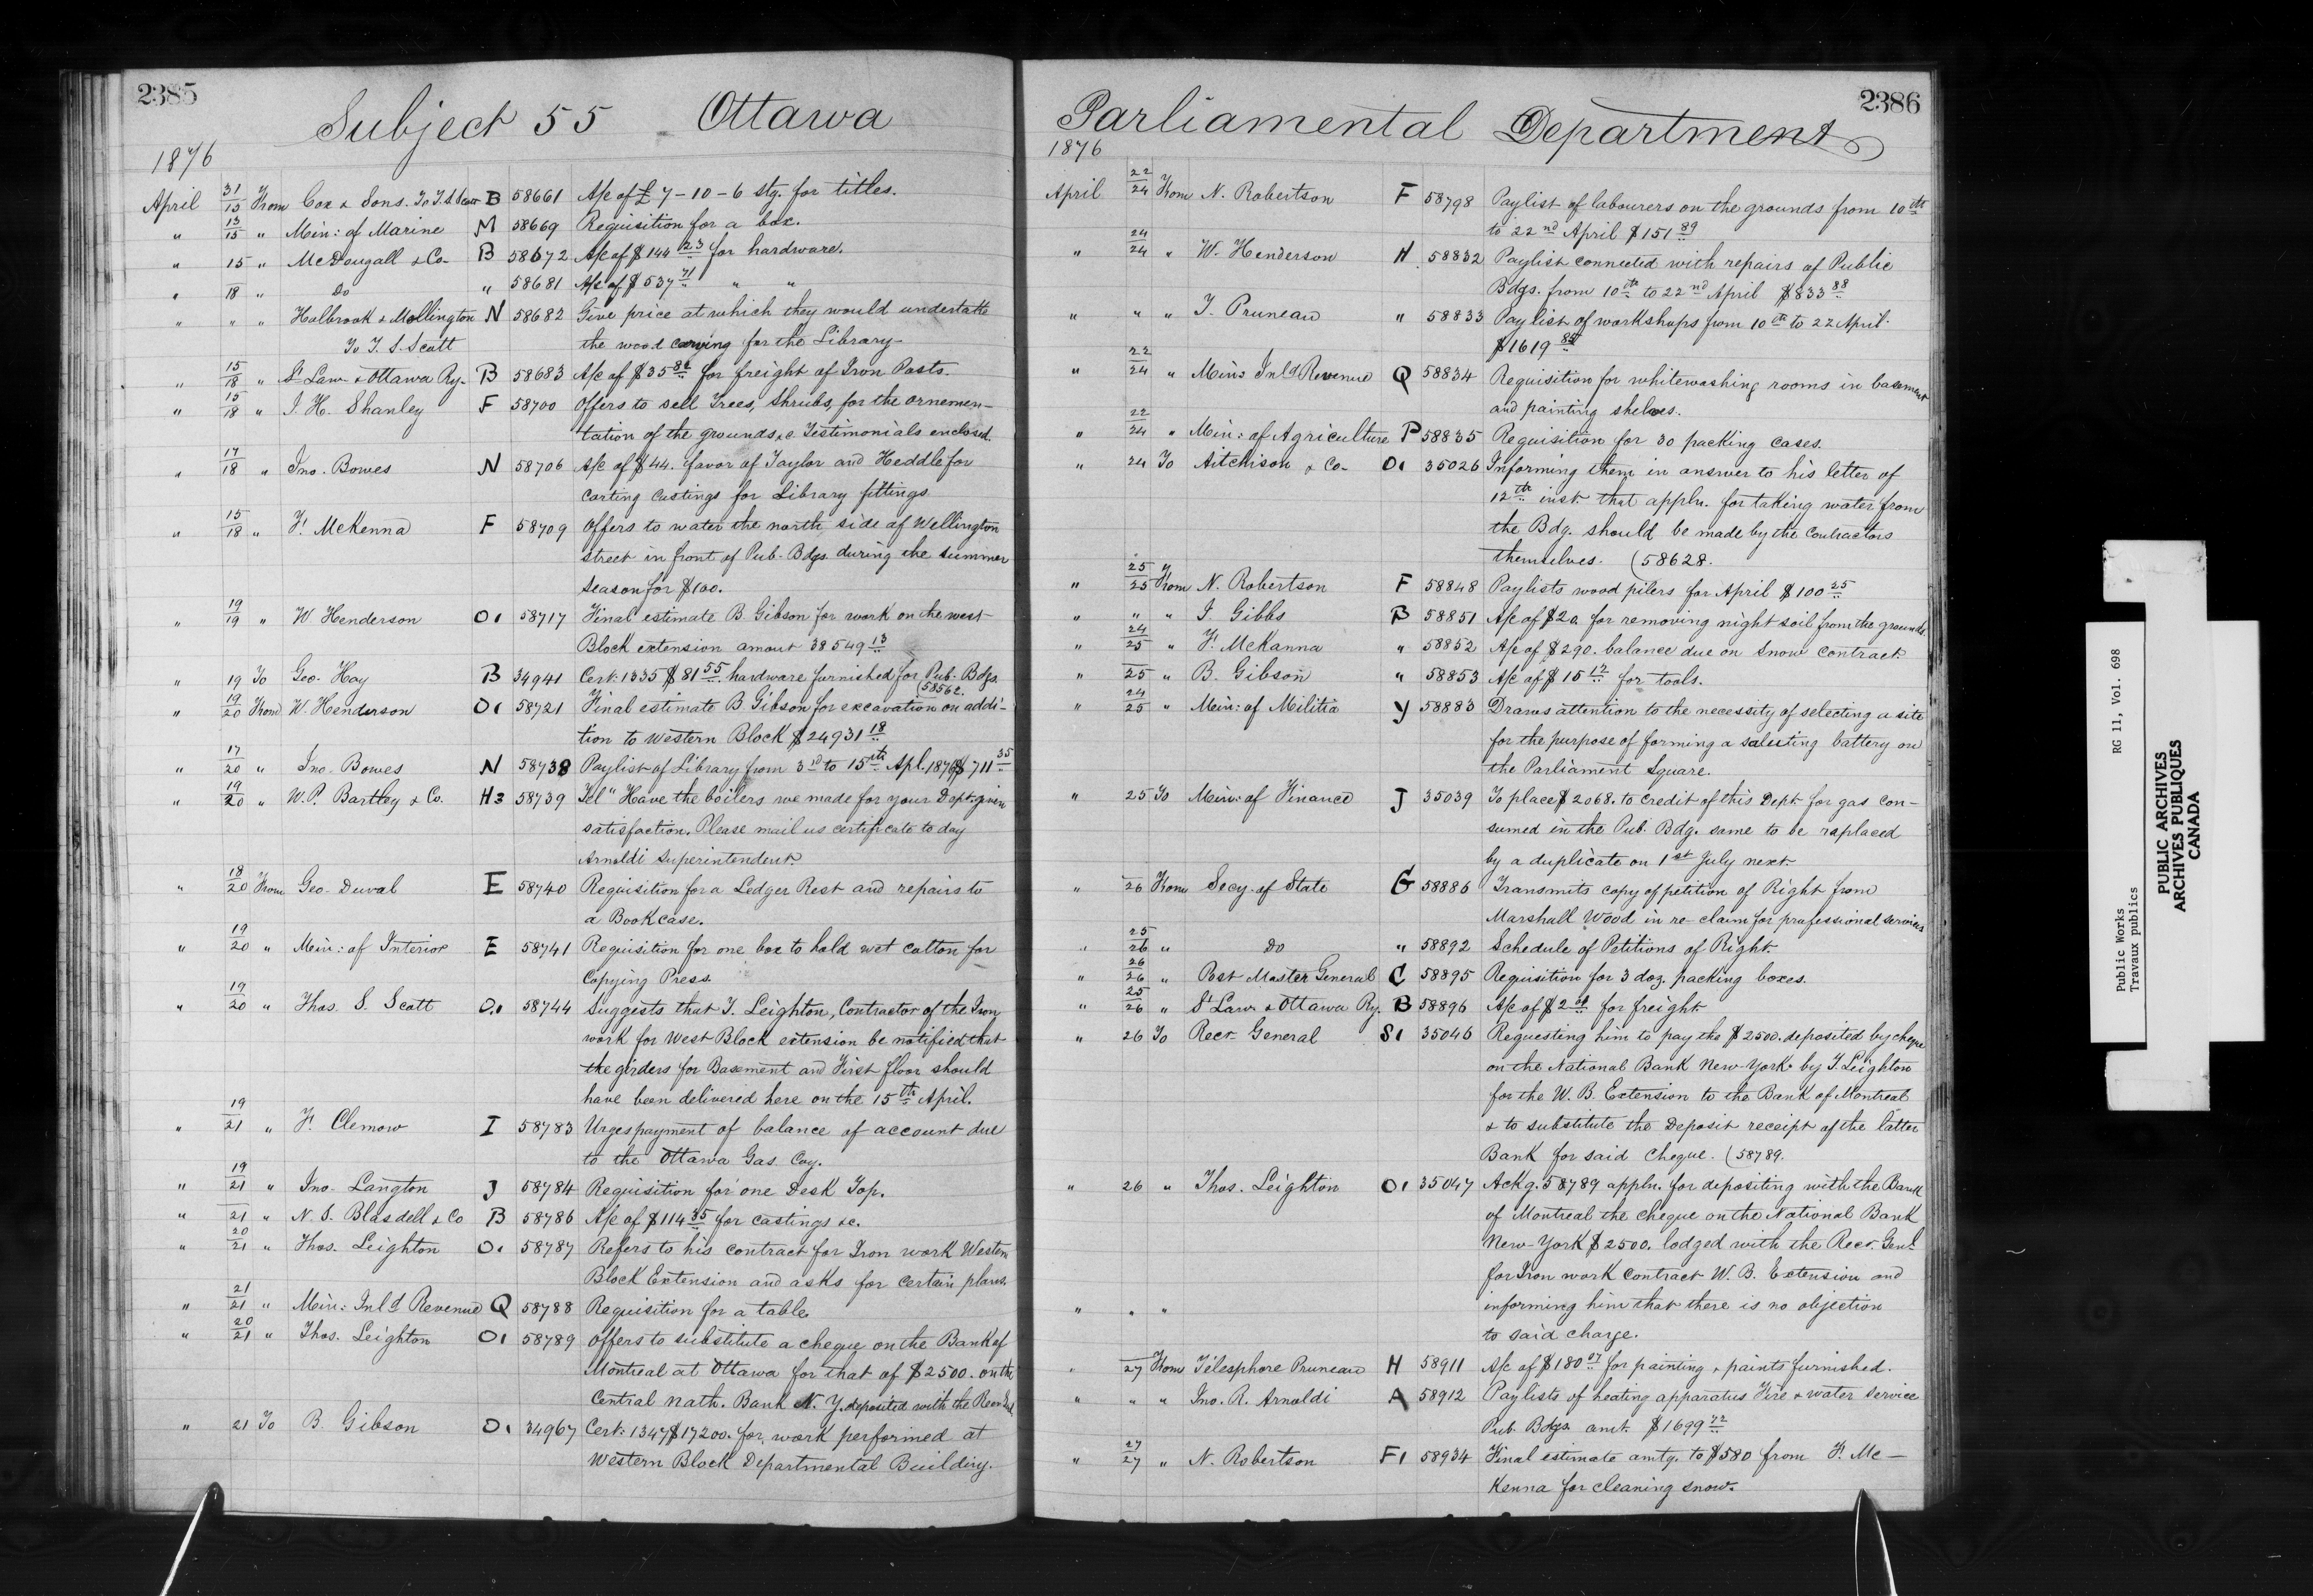 2385
Subject 55 Ottawa
1876
April 31/15 From Cox & Sons. To T.S. Scott B 58661 A/c of £ 7-10-6 stg. for titles.
" 13/15 " Min: of Marine M 58669 Requisition for a box.
" 15 " McDougall & Co- B 58672 A/c of $144 23 for hardware.
" 18 " Do " 58681 A/c of $537 71 " "
" " " Holbrook & Mollington N 58682 Give price at which they would undertake
To T. S. Scott the wood carving for the Library-
" 15/18 " St Law & Ottawa Ry- B 58683 A/c of $35 82 for freight of Iron Posts-
" 15/18 " J. H. Shanley F 58700 Offers to sell Trees, Shrubs, for the ornemen-
tation of the grounds &c. Testimonials enclosed.
" 17/18 " Jno. Bowes N 58706 A/c of $44. favor of Taylor and Heddle for
carting castings for Library fittings.
" 15/18 " F. McKenna F 58709 Offers to water the north side of Wellington
street in front of Pub. Bdgs. during the summer
season for $100.
" 19/19 " W Henderson O1 58717 Final estimate B. Gibson for work on the west
Block extension amout 38549 13
" 19 To Geo. Hay B 34941 Cert: 1335 $81 55 hardware furnished for Pub. Bdgs.
(58562.
" 19/20 From W. Henderson O1 58721 Final estimate B Gibson for excavation on addi-
tion to Western Block $24931 18
" 17/20 " Jno. Bowes N 58738 Paylist of Library from 3rd to 15th Apl. 1876 $711 35
" 19/20 " W.P. Bartley & Co. H3 58739 Tel " Have the boilers we made for your Dept: given
satisfaction. Please mail us certificate to day
Arnoldi Superintendent.
" 18/20 From Geo. Duval E 58740 Requisition for a Ledger Rest and repairs to
a Bookcase.
" 19/20 " Min: of Interior E 58741 Requisition for one box to hold wet cotton for
Copying Press.
" 19/20 " Thos. S. Scott O.1 58744 Suggests that T. Leighton, Contractor of the Iron
work for West Block extension be notified that
the girders for Basement and First floor should
have been delivered here on the 15th April.
" 19/21 " F. Clemow I 58783 Urges payment of balance of account due
to the Ottawa Gas Coy.
" 19/21 " Jno. Langton J 58784 Requisition for one Desk Top.
" 21 " N. S. Blasdell & Co B 58786 A/c of $114 85 for castings &c.
" 20/21 " Thos. Leighton O. 58787 Refers to his contract for Iron work Western
Block Extension and asks for certain plans.
" 21/21 " Min: Inld Revenue Q 58788 Requisition for a table.
" 20/21 " Thos. Leighton O1 58789 Offers to substitute a cheque on the Bank of
Montreal at Ottawa for that of $2500. on the
Central Nath. Bank N. Y. deposited with the Recr Genl
" 21 To B. Gibson O1 34967 Cert: 1347 $17200. for work performed at
Western Block Departmental Building.
2386
Parliamental Department
1876
April 22/24 From N. Robertson F 58798 Paylist of labourers on the grounds from 10th
to 22nd April $151 89
" 24/24 " W. Henderson H 58832 Paylist connected with repairs of Public
Bdgs. from 10th to 22nd April $833 88
" " " T. Pruneau " 58833 Paylist of workshops from 10th to 22 April.
$1619 85
" 22/24 " Min: Inld Revenue Q 58834 Requisition for whitewashing rooms in basement
and painting shelves.
" 22/24 " Min: of Agriculture P 58835 Requisition for 30 packing cases.
" 24 To Aitchison & Co- O1 35026 Informing them in answer to his letter of
12th inst. that appln. for taking water from
the Bdg. should be made by the contractors
themselves. (58628.
" 25/25 From N. Robertson F 58848 Paylists wood pilers for April $100 25
" " " J Gibbs B 58851 A/c of $20 for removing night soil from the grounds.
" 24/25 " F. McKanna " 58852 A/c of $290. balance due on Snow contract.
" 25 " B. Gibson " 58853 A/c of $15 12 for tools.
" 24/25 " Min: of Militia Y 58883 Draws attention to the necessity of selecting a site
for the purpose of forming a saluting battery on
the Parliament Square.
" 25 To Min: of Finance J 35039 To place $2068. to credit of this Dept. for gas con-
sumed in the Pub. Bdg. same to be raplaced
by a duplicate on 1st July next.
" 26 From Secy. of State G 58886 Transmits copy of petition of Right from
Marshall Wood in re- claim for professional services
" 25/26 " Do " 58892 Schedule of Petitions of Right.
" 26/26 " Post Master General C 58895 Requisition for 3 doz. packing boxes.
" 25/26 " St Law. & Ottawa Ry. B 58896 A/c of $2 for freight
" 26 To Recr. General S1 35046 Requesting him to pay the $2500. deposited by cheque
on the National Bank New-York by T. Leighton
for the W. B. Extension to the Bank of Montreal
& to substitute the Deposit receipt of the latter
Bank for said Cheque. (58789.
" 26 " Thos. Leighton O1 35047 Ackg. 58789 appln. for depositing with the Bank
of Montreal the cheque on the National Bank
New-York $2500. lodged with the Recr. Genl
for Iron work contract W. B. Extension and
" " " informing him that there is no objection
to said charge.
" 27 From Télesphore Pruneau H 58911 A/c of $180 07 for painting & paints furnished.
" " " Jno. R. Arnoldi A 58912 Paylists of heating apparatus Fire & water service
Pub. Bdgs. amt. $1699 72
" 27/27 " N. Robertson F1 58934 Final estimate amtg. to $580 from F. Mc-
Kenna for cleaning snow.
Public Works RG 11, Vol. 698
Travaux publics
PUBLIC ARCHIVES
ARCHIVES PUBLIQUES
CANADA